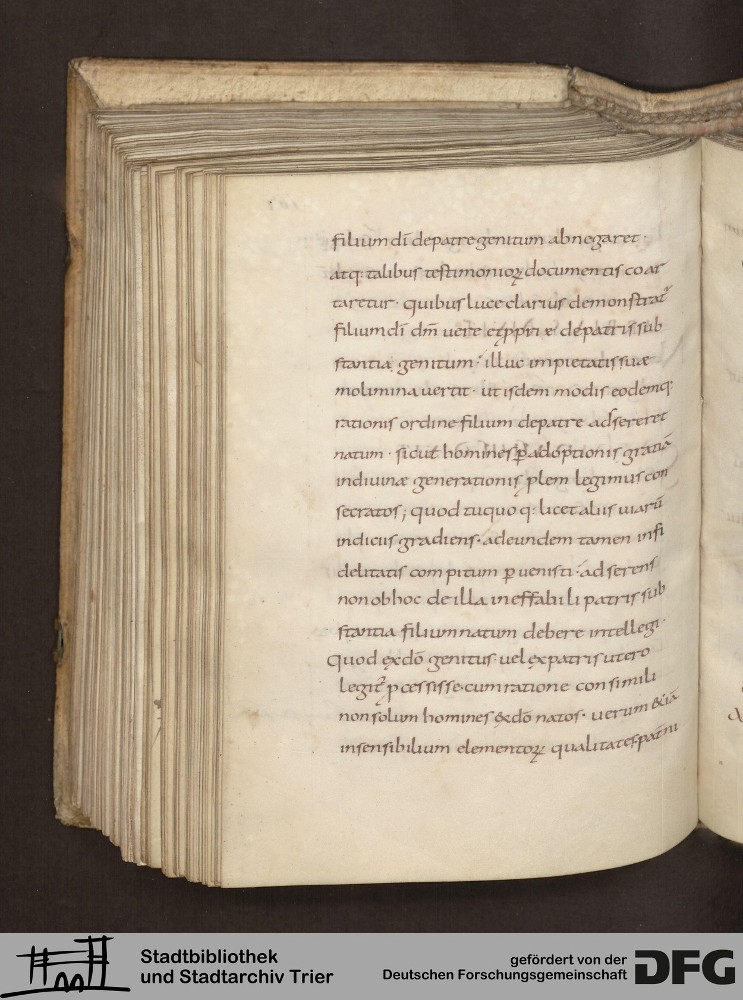 filium dī de patre genitum abnegaret·
atq: talibus testimonioꝝ documentis coar
taretur· quibus luce clarius demonstrat᷑
filium dī dm̄ vere et ꝓprie de patris sub
stantia genitum· illuc impietatis suæ
molimina vertit· ut isdem modis eodemq:
rationis ordine filium de patre adsereret
natum· sicut homines ꝑ adoptionis gratiā
in divinæ generationis ꝓlem legimus con
secratos; quod tu quoq: licet aliis viarū
indiciis gradiens· ad eundem tamen infi
delitatis compitum ꝑvenisti· adserens
non ob hoc de illa ineffabili patris sub
stantia filium natum debere intellegi·
Quod ex dō genitus vel ex patris utero
legit᷑ ꝓcessisse· cum ratione consimili
non solum homines ex dō natos· verum &iā
insensibilium elementoꝝ qualitates patrni
Stadtbibliothek
und Stadtarchiv Trier
gefördert von der
Deutschen Forschungsgemeinschaft
DFG